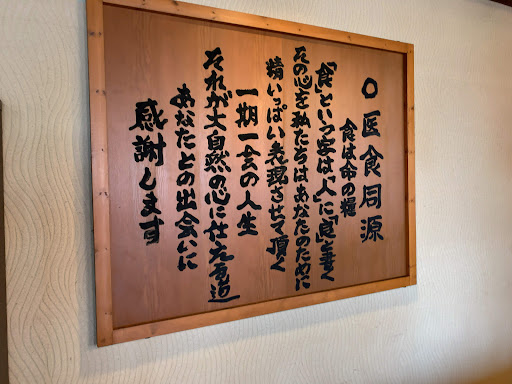 ○医食同源
食は命の糧
「食」という字は「人」に「良」と書く
その心を私たちはあなたのために
精いっぱい表現させて頂く
一期一会の人生
それが大自然の心に仕える道
あなたとの出会いに
感謝します